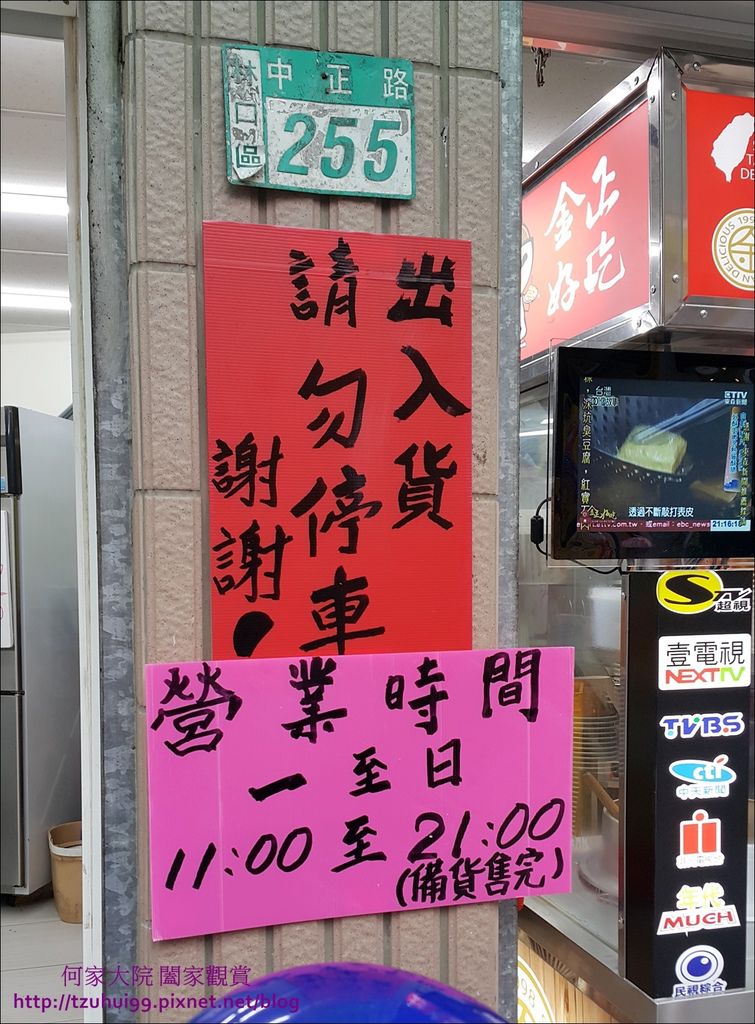 中正路
林口區
255
出入貨
請勿停車
謝謝!
營業時間
一至日
11:00至21:00
(備貨售完)
金正好吃
台灣
ETtv
透過不斷敲打表皮
或email:ebc_news
21:16:16
超視
壹電視
NEXTTV
TVBS
cti
中天新聞
年代
MUCH
民視綜合
何家大院 闔家觀賞
http://tzuhui99.pixnet.net/blog